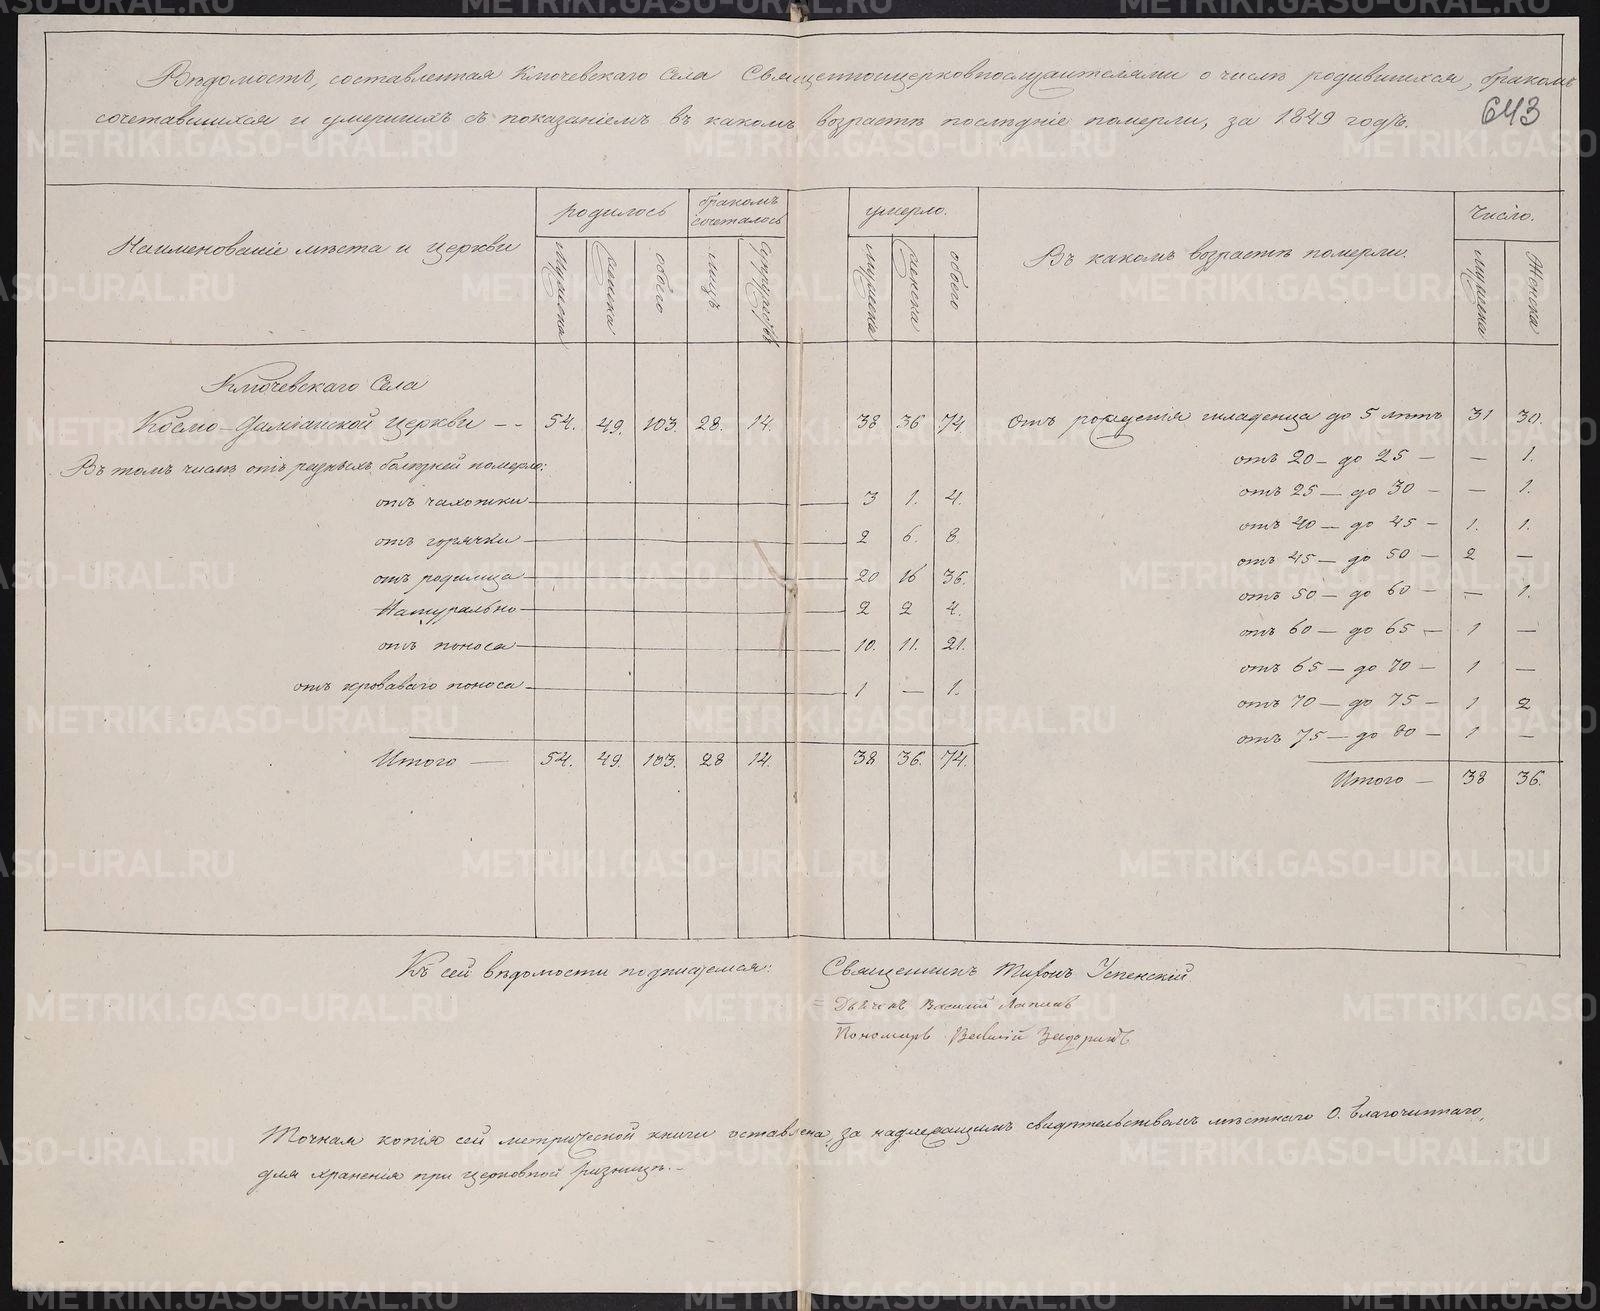 Вѣдомость, составленная Ключевскаго Села Священноцерковнослужителями о числѣ родившихся, бракомъ
сочетавшихся и умершихъ съ показаніемъ въ какомъ возрастѣ послѣдніе померли, за 1849 годъ.
643
Наименованіе мѣста и церкви
родилось
бракомъ сочеталось
умерло.
Въ какомъ возрастѣ померли.
Число.
Мужеска Женска обоего лицъ Супруговъ мужеска Женска обоего мужеска Женска
Ключевскаго Села
Космо-Даміанской церкви -- 54. 49. 103. 28. 14. 38 36 74. Отъ рожденія младенца до 5 лѣтъ 31 30.
Въ томъ числѣ отъ разныхъ болѣзней померло:
отъ 20 - до 25 — — 1.
отъ чахотки 3 1. 4.
отъ 25 — до 30 — — 1.
отъ горячки 2 6. 8.
отъ 40 — до 45 — 1. 1.
отъ родимца 20 16 36.
отъ 45 — до 50 — 2 —
Натурально 2 2 4.
отъ 50 — до 60 — — 1.
отъ поноса 10. 11. 21.
отъ 60 — до 65 — 1 —
отъ кроваваго поноса 1 — 1.
отъ 65 — до 70 — 1 —
отъ 70 — до 75 — 1 2
отъ 75 — до 80 — 1 —
Итого — 54. 49. 103. 28 14. 38 36. 74.
Итого — 38 36.
Къ сей вѣдомости подписуемся: Священникъ Тифонъ Успенскій.
Дьячекъ Василій
Пономарь
Точная копія сей метрической книги оставлена, за надлежащимъ свидѣтельствомъ мѣстнаго О. Благочиннаго,
для храненія при церковной ризницѣ.-
METRIKI.GASO-URAL.RU